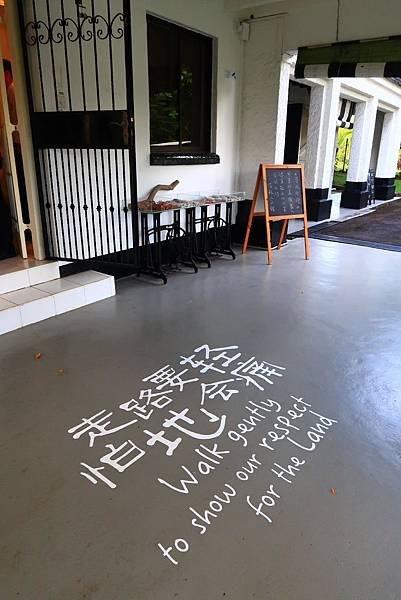 走路要輕
怕地會痛
Walk gently
to show our respect
for the Land